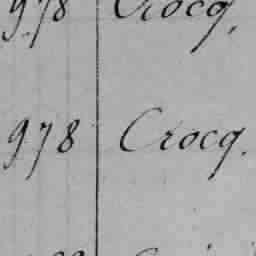 978 Crocq,
978 Crocq.